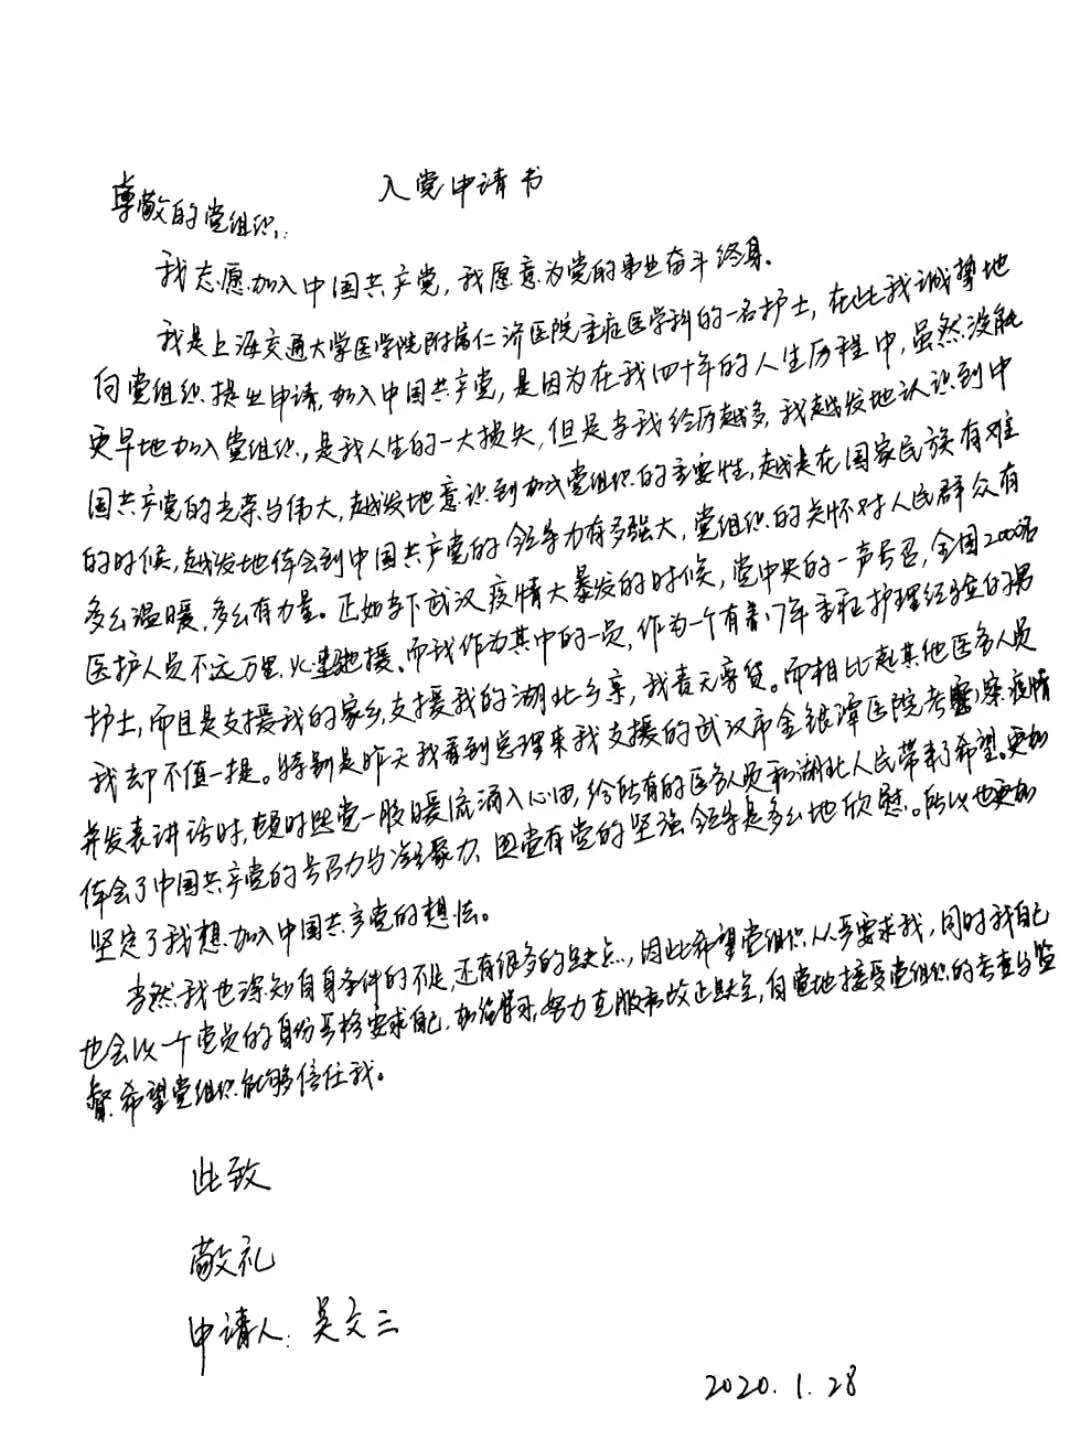 入党申请书
尊敬的党组织:
我志愿加入中国共产党,我愿意为党的事业奋斗终身。
我是上海交通大学医学院附属仁济医院重症医学科的一名护士,在此我诚挚地
向党组织提出申请,加入中国共产党,是因为在我四十年的人生历程中,虽然没能
更早地加入党组织,是我人生的一大损失,但是当我经历越多,我越发地认识到中
国共产党的光荣与伟大,越发地意识到加入党组织的重要性,越是在国家民族有难
的时候,越发地体会到中国共产党的领导力有多强大,党组织的关怀对人民群众有
多么温暖,多么有力量。正如当下武汉疫情大暴发的时候,党中央的一声号召,全国2000名
医护人员不远万里,火速驰援。而我作为其中的一员,作为一个有着17年重症护理经验的男
护士,而且是支援我的家乡,支援我的湖北乡亲,我责无旁贷。而相比起其他医务人员
我却不值一提。特别是昨天我看到总理来我支援的武汉市金银潭医院考察疫情
并发表讲话时,顿时思觉一股暖流涌入心田,给所有的医务人员和湖北人民带来了希望。更加
体会了中国共产党的号召力与凝聚力、因党有党的坚强领导是多么地欣慰。所以也更加
坚定了我想加入中国共产党的想法。
当然我也深知自身条件的不足,还有很多的缺点,因此希望党组织从严要求我,同时我自己
也会以一个党员的身份严格要求自己,加强学习,努力克服和改正缺点,自觉地接受党组织的考查与监
督.希望党组织能够信任我。
此致
敬礼
申请人:吴文三
2020.1.28